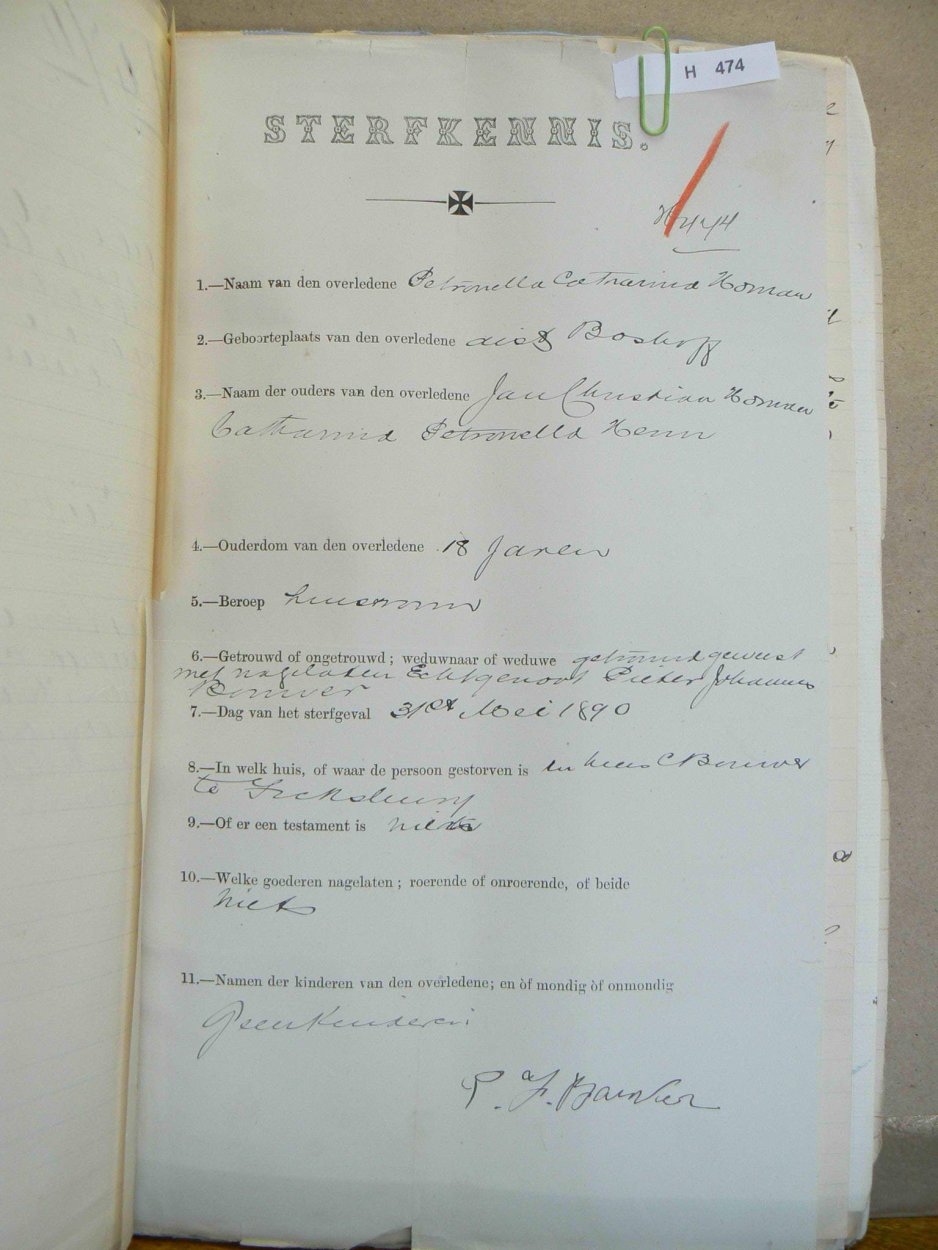 H 474
STERFKENNIS.
H 474
1.—Naam van den overledene Petronella Catharina Homan
2.—Geboorteplaats van den overledene dist Boshoff
3.—Naam der ouders van den overledene Jan Christian Homan
Catharina Petronella
4.—Ouderdom van den overledene 18 Jaren
5.—Beroep huisvrouw
6.—Getrouwd of ongetrouwd ; weduwnaar of weduwe getrouwd geweest
met nagelaten Echtgenoot Pieter Johannes
Bouwer
7.—Dag van het sterfgeval 31st Mei 1890
8.—In welk huis, of waar de persoon gestorven is in huis C Bouwer
te Ficksburg
9.—Of er een testament is niets
10.—Welke goederen nagelaten ; roerende of onroerende, of beide
niets
11.—Namen der kinderen van den overledene; en òf mondig òf onmondig
Geen Kinderen
P. F.